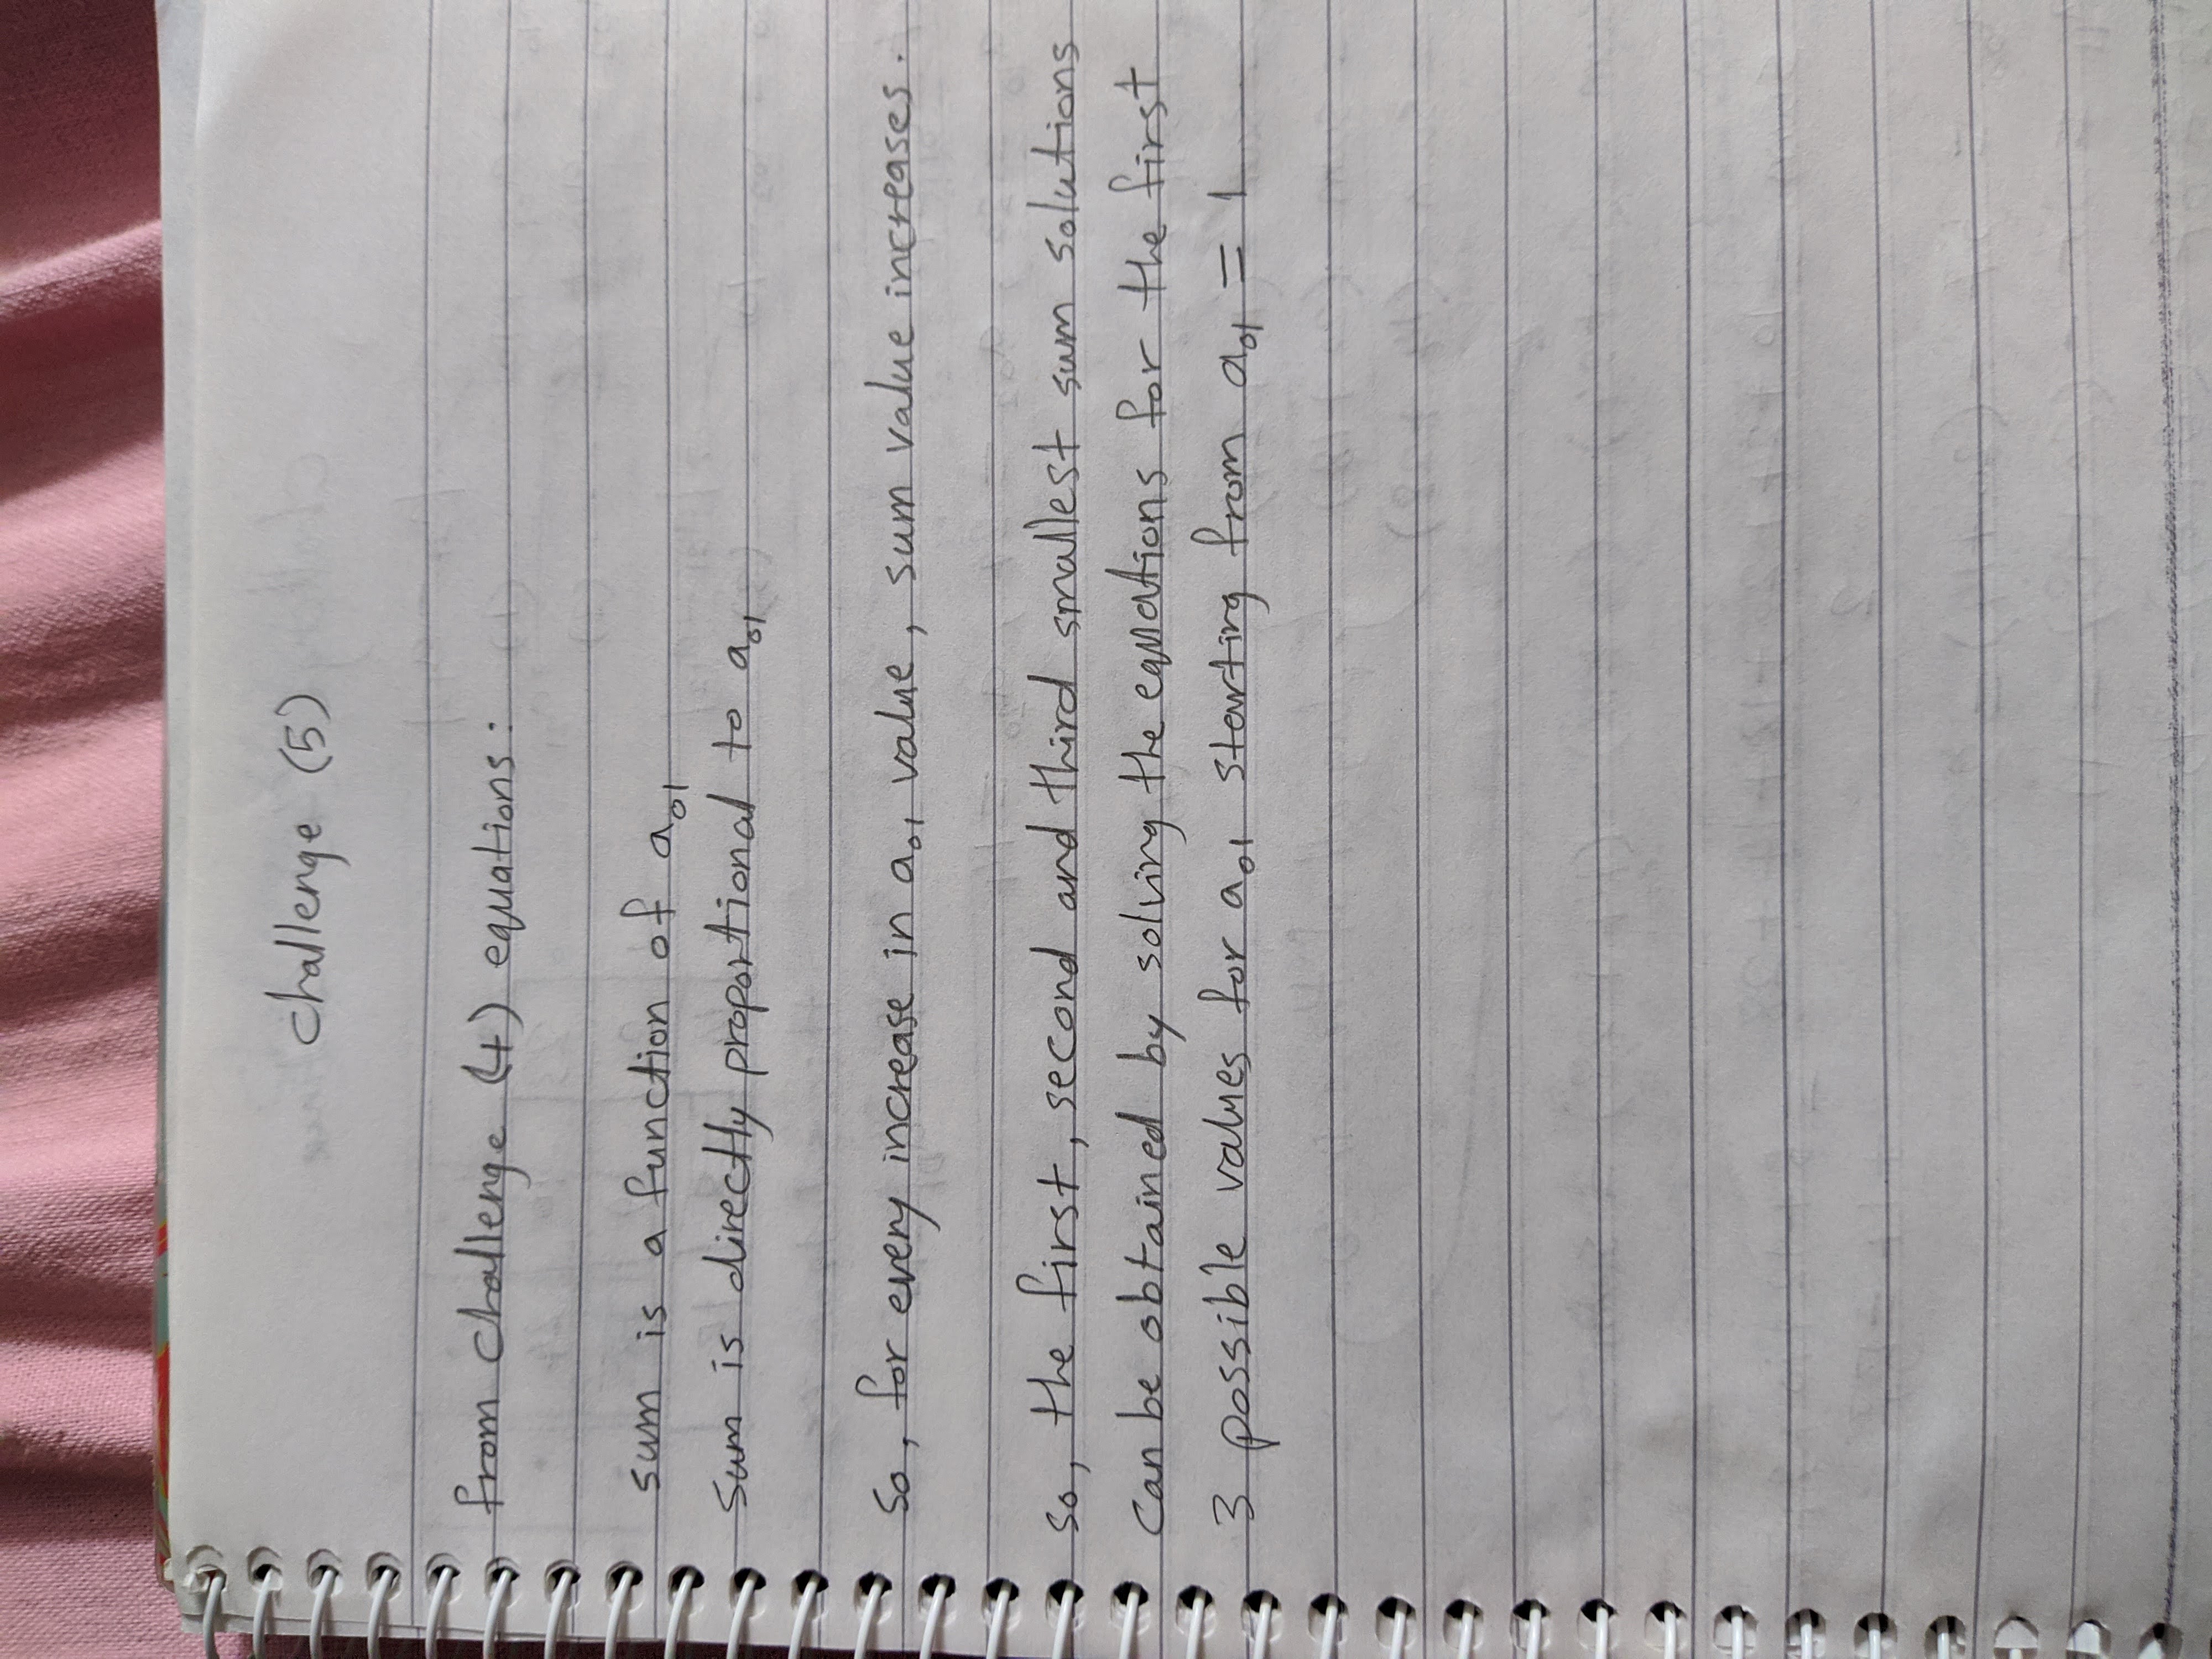 Challenge (5)
from Challenge (4) equations:
sum is a function of a01
sum is directly proportional to a01
So, for every increase in a01 value, sum value increases.
so, the first, second and third smallest sum solutions
can be obtained by solving the equations for the first
3 possible values for a01 starting from a01 = 1